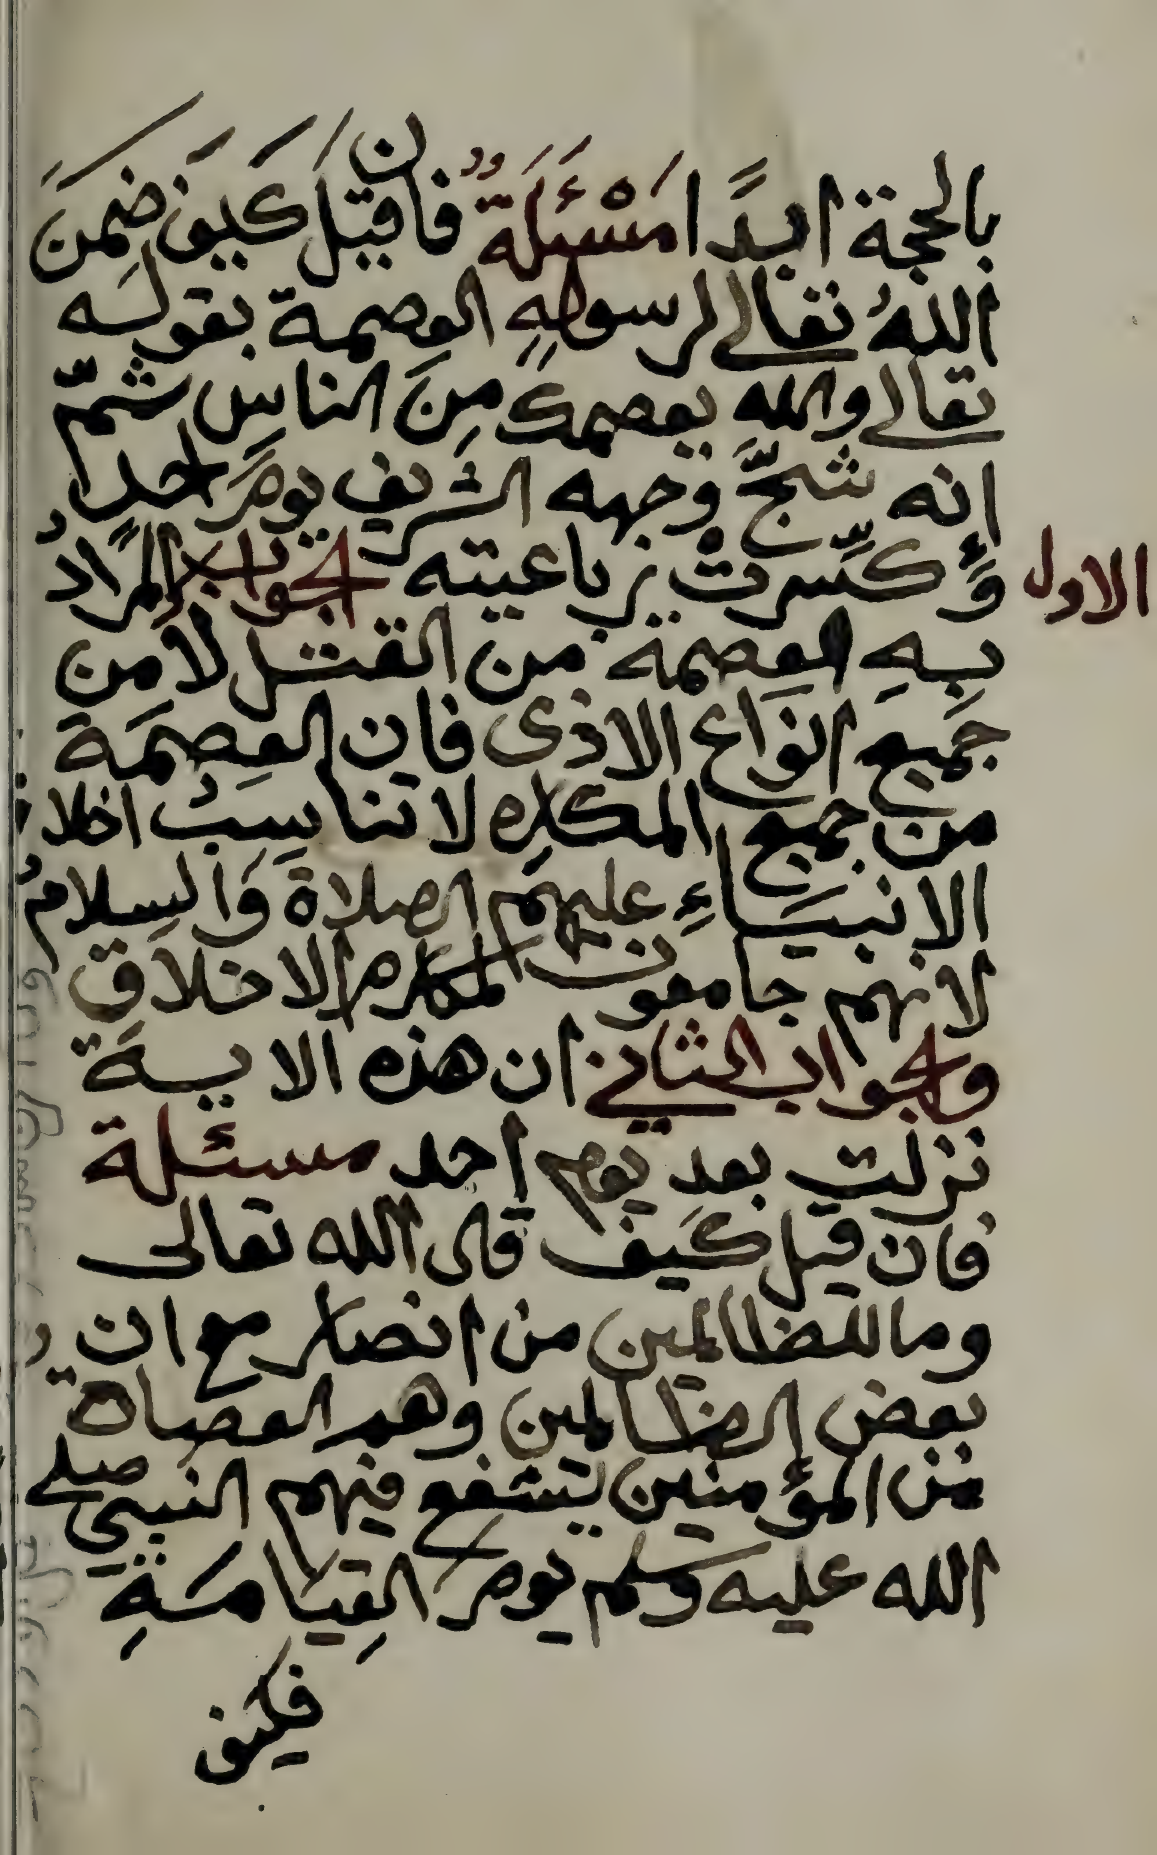 بالحجة ابدًا مَسْئَلَةٌ فان قيل كيف ضمن
اللهُ تعالى لرسولهِ العصمة بقوله
تعالى والله يعصمك مِنَ الناسِ ثمّ
انه شجّ وجهه الشريف يومَ احدٍ
وَكسّرتْ رباعيته الجواب المرادُ
الاول
بهِ العصمة من القتل لا من
جميع انواع الاذى فان العِصمَة
من جميع المكاره لا تناسِبُ اخلاق
الانبياءِ عليهم الصلاة وَالسلامُ
لانهم جامعون لمكارم الاخلاق
والجواب الثاني ان هذه الاية
نزلت بعد يوم احد مسئلة
فان قيل كَيف قال الله تعالى
وما للظالمين من انصار مع ان
بعض الظالمين وهم العصاة
من المؤمنين يشفع فيهم النبي صلى
الله عليه وسلم يومَ القِيامَةِ
فكيف